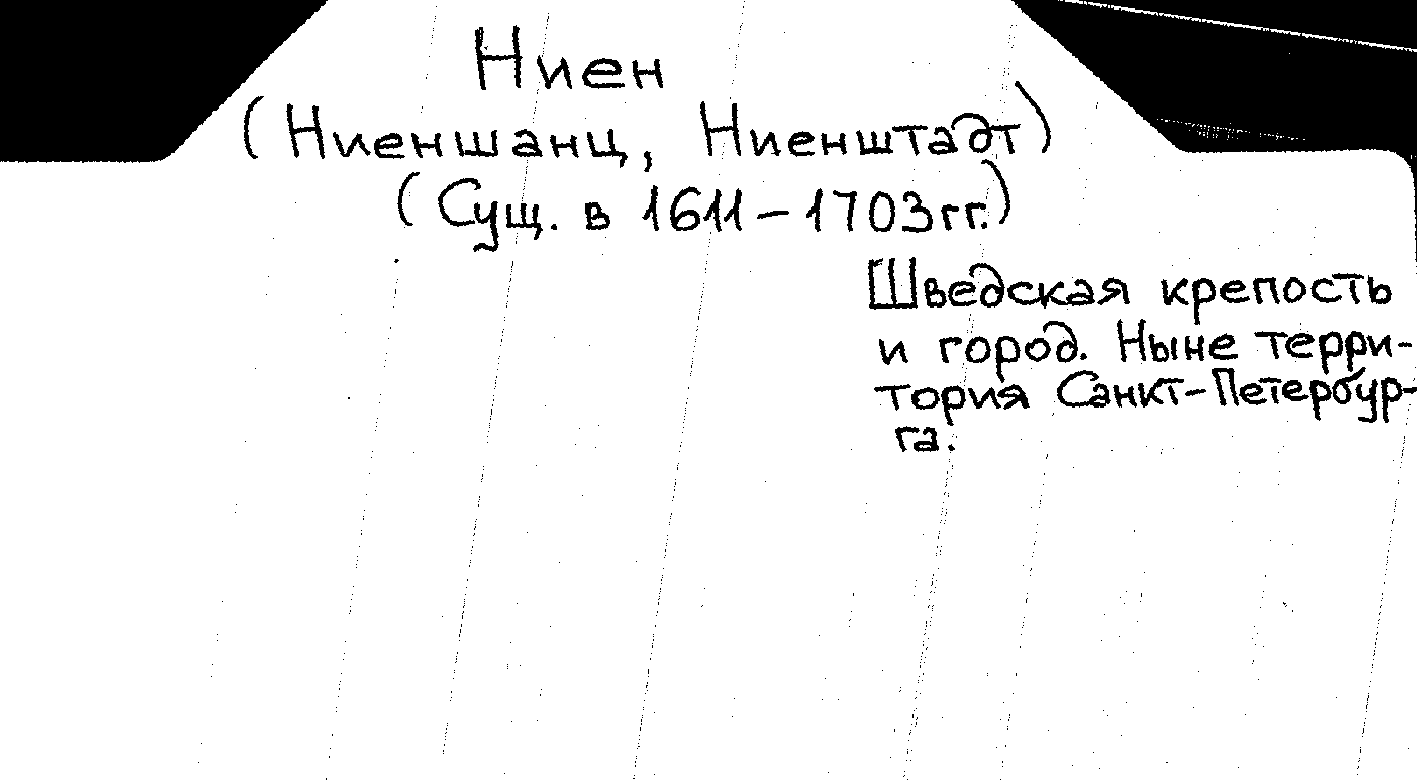 Ниен
(Ниеншанц, Ниенштадт)
(Сущ. в 1611-1703гг.)
Шведская крепость
и город. Ныне терри-
тория Санкт-Петербур-
га.